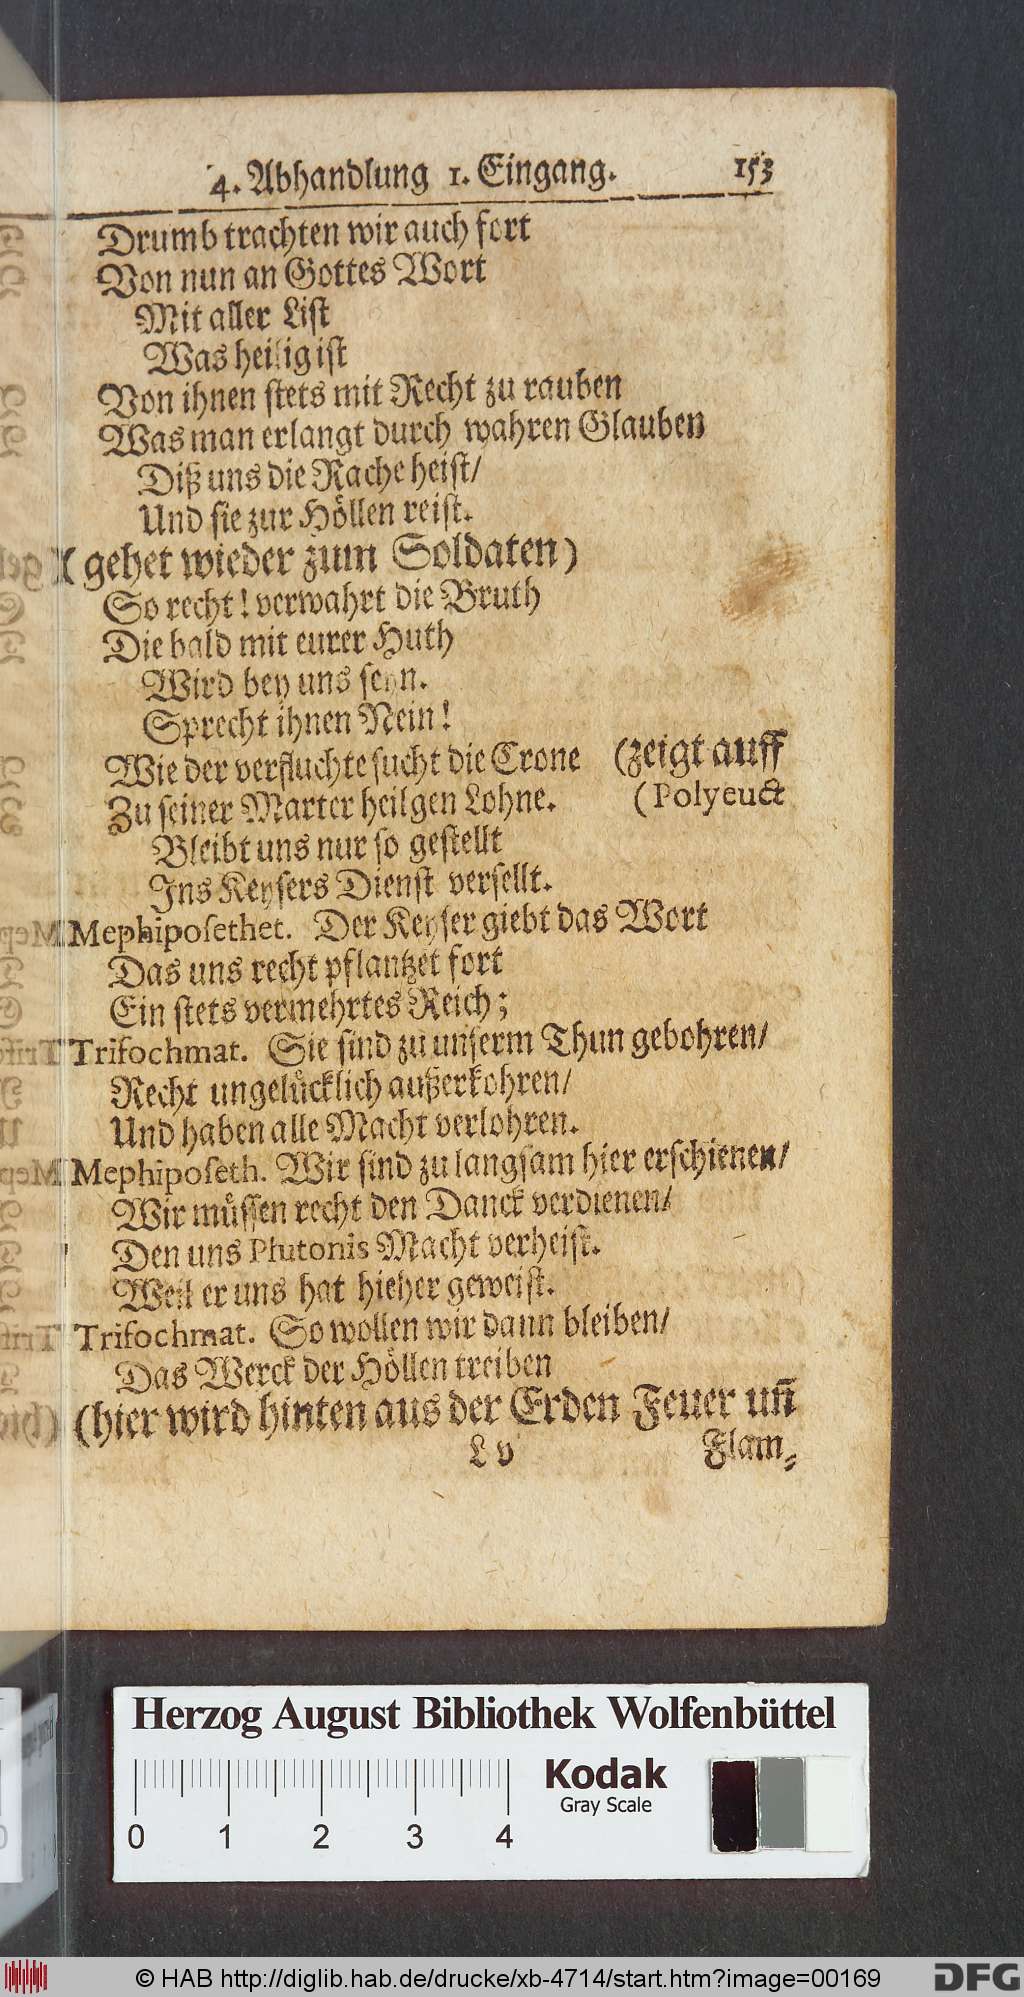 4. Abhandlung 1. Eingang. 153
Drumb trachten wir auch fort
Von nun an Gottes Wort
Mit aller List
Was heilig ist
Von ihnen stets mit Recht zu rauben
Was man erlangt durch wahren Glauben
Diß uns die Rache heist/
Und sie zur Höllen reist.
(gehet wieder zum Soldaten)
So recht! verwahrt die Bruth
Die bald mit eurer Huth
Wird bey uns seyn.
Sprecht ihnen Nein!
Wie der verfluchte sucht die Crone (zeigt auff
Zu seiner Marter heilgen Lohne. (Polyeuct
Bleibt uns nur so gestellt
Ins Keysers Dienst versellt.
Mephiposethet. Der Keyser giebt das Wort
Das uns recht pflantzet fort
Ein stets vermehrtes Reich;
Trifochmat. Sie sind zu unserm Thun gebohren/
Recht ungelücklich außerkohren/
Und haben alle Macht verlohren.
Mephiposeth. Wir sind zu langsam hier erschienen/
Wir müssen recht den Danck verdienen/
Den uns Plutonis Macht verheist.
Weil er uns hat hieher geweist.
Trifochmat. So wollen wir dann bleiben/
Das Werck der Höllen treiben
(hier wird hinten aus der Erden Feuer uñ
L v Flam⸗
Herzog August Bibliothek Wolfenbüttel
Kodak
Gray Scale
0 1 2 3 4
© HAB http://diglib.hab.de/drucke/xb-4714/start.htm?image=00169
DFG